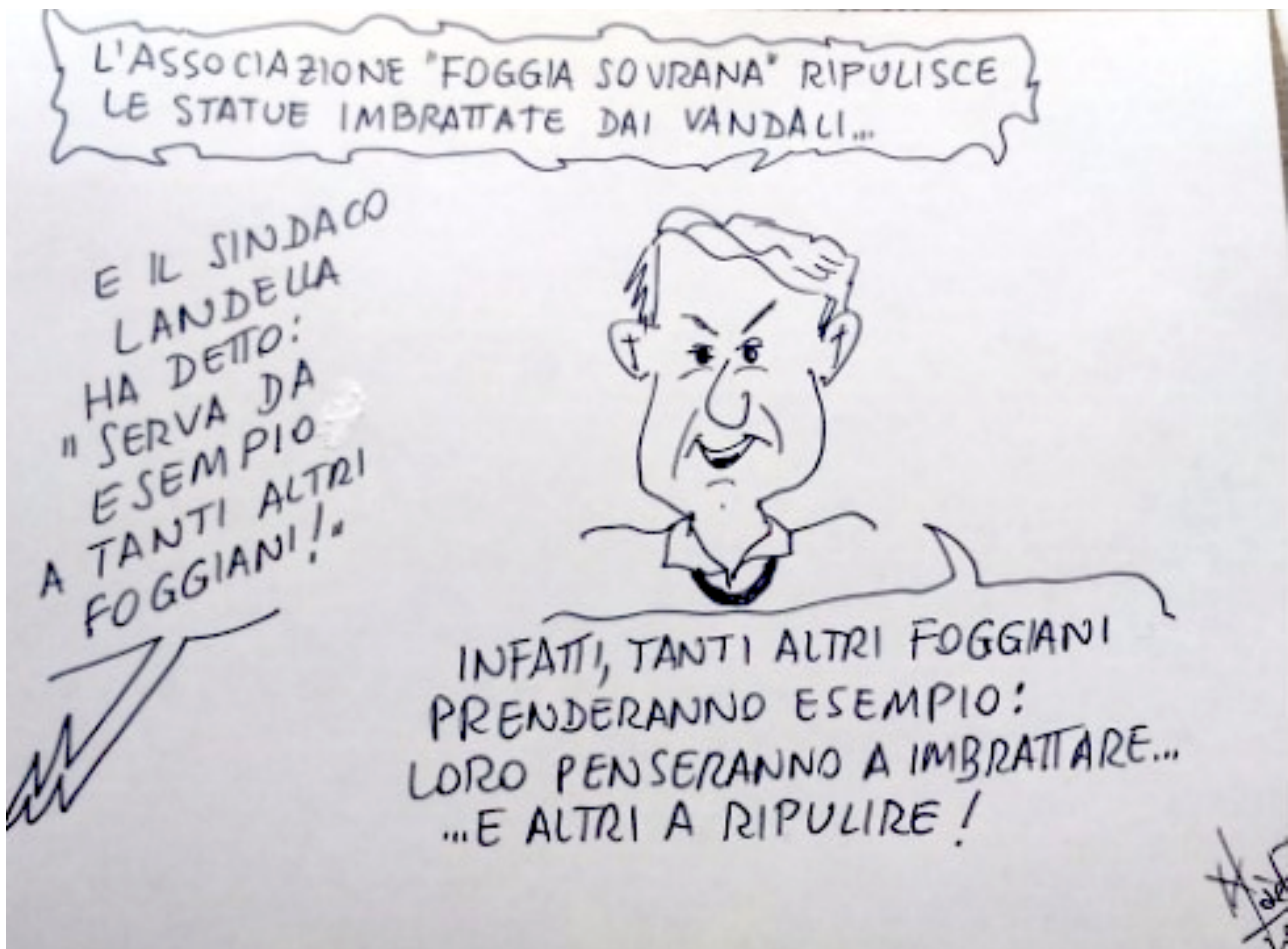 L'ASSOCIAZIONE "FOGGIA SOVRANA" RIPULISCE
LE STATUE IMBRATTATE DAI VANDALI...
E IL SINDACO
LANDELLA
HA DETTO:
"SERVA DA
ESEMPIO
A TANTI ALTRI
FOGGIANI!"
INFATTI, TANTI ALTRI FOGGIANI
PRENDERANNO ESEMPIO:
LORO PENSERANNO A IMBRATTARE...
...E ALTRI A RIPULIRE!